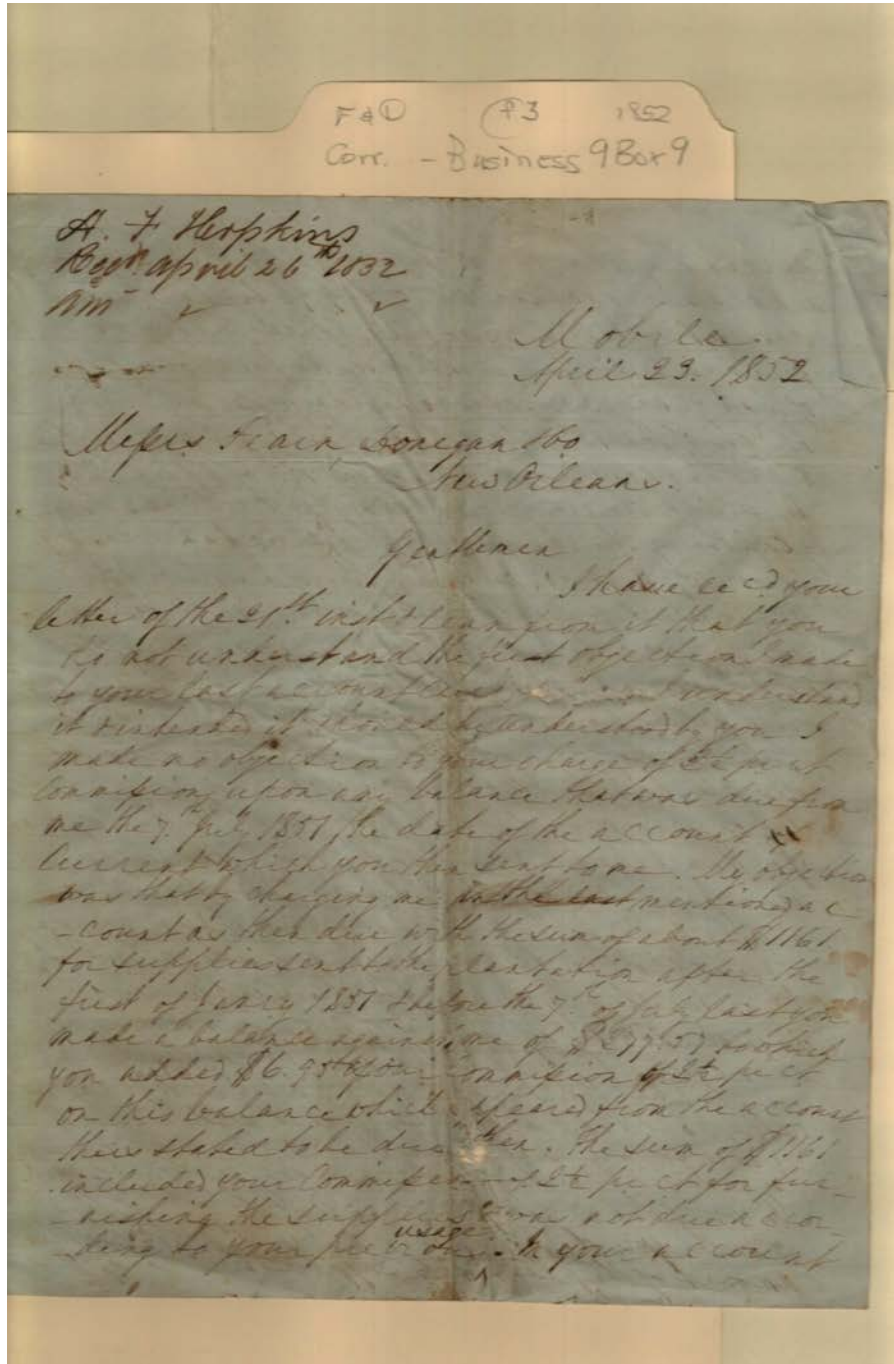 F & D (F3 1852
Corr. - Business 9 Box 9
A. F. Hopkins
Recd. april 26th 1852
Mobile
April 23. 1852
Messrs Fearn Donegan & Co
New Orleans.
Gentlemen
I have recd your
letter of the 21st inst & learn from it that you
do not understand the first objection I made
to your last account understand
it & intended it should be understood by you I
made no objection to your charge of 2½ pr ct
Commission upon any balance that was due from
me the 7th July 1851, the date of the account
Current which you then sent to me. My objection
was that by charging me in the last mentioned ac
-count as then due with the sum of about $1161
for supplies sent to the plantation after the
first of Janry 1851 & before the 7th of July last you
made a balance against me of to which
you added $6.95 for your Commission of 2½ pr ct
on this balance which appeared from the account
thus stated to be due then. The sum of $1161
included your Commission of 2½ pr ct for fur-
-nishing the supplies & was not due accor-
-ding to your previous usage. In your account